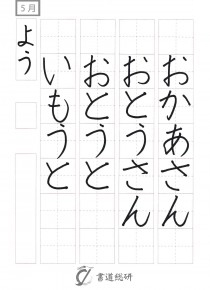 5月
おかあさん
おとうさん
おとうと
いもうと
よう
書道総研